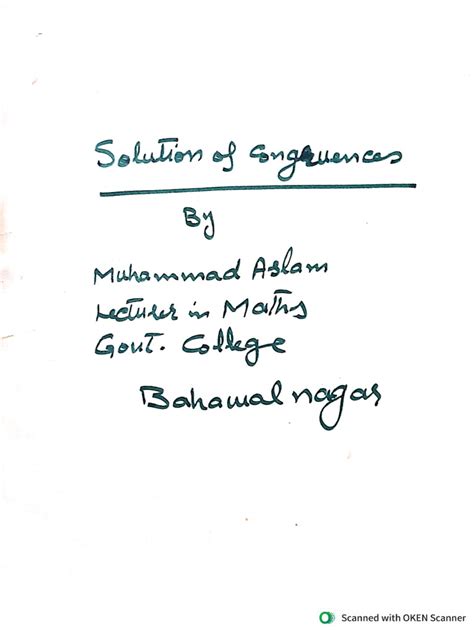 Solution of Congruences
By
Muhammad Aslam
Lecturer in Maths
Govt. College
Bahawalnagar
Scanned with OKEN Scanner